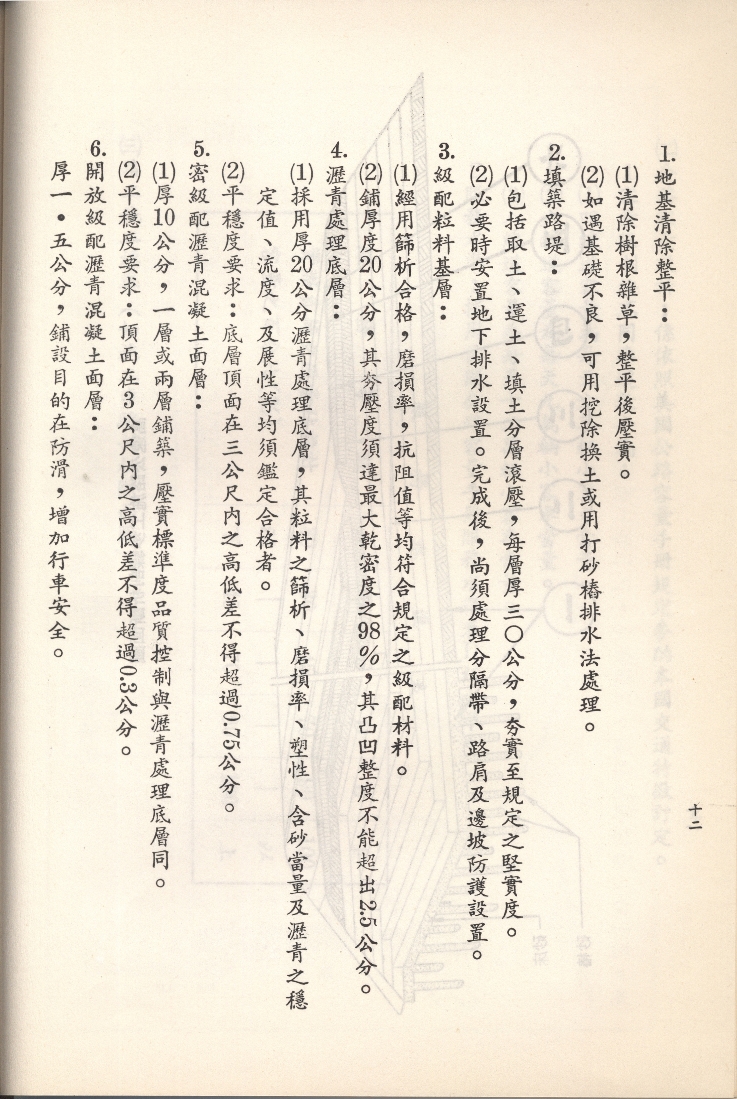 1.地基清除整平：
(1)清除樹根雜草，整平後壓實。
(2)如遇基礎不良，可用挖除換土或用打砂樁排水法處理。
2.填築路堤：
(1)包括取土、運土、填土分層滾壓，每層厚三〇公分，夯實至規定之堅實度。
(2)必要時安置地下排水設置。完成後，尚須處理分隔帶、路肩及邊坡防護設置。
3.級配粒料基層：
(1)經用篩析合格，磨損率，抗阻值等均符合規定之級配材料。
(2)鋪厚度20公分，其夯壓度須達最大乾密度之98%，其凸凹整度不能超出2.5公分。
4.瀝青處理底層：
(1)採用厚20公分瀝青處理底層，其粒料之篩析、磨損率、塑性、含砂當量及瀝青之穩
定值、流度、及展性等均須鑑定合格者。
(2)平穩度要求：底層頂面在三公尺內之高低差不得超過0.75公分。
5.密級配瀝青混凝土面層：
(1)厚10公分，一層或兩層鋪築，壓實標準度品質控制與瀝青處理底層同。
(2)平穩度要求：頂面在3公尺內之高低差不得超過0.3公分。
6.開放級配瀝青混凝土面層：
厚一•五公分，鋪設目的在防滑，增加行車安全。
十二